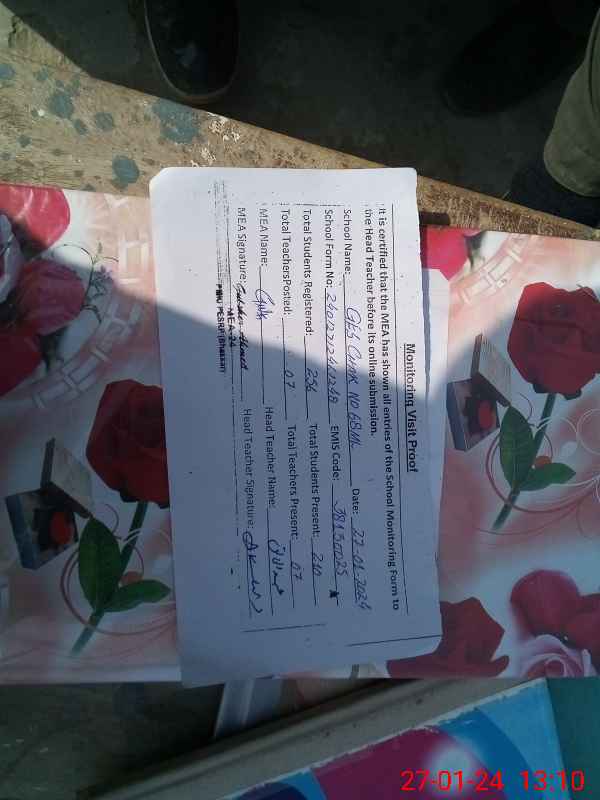 Monitoring Visit Proof
It is certified that the MEA has shown all entries of the School Monitoring Form to
the Head Teacher before its online submission.
School Name: GES CHAK NO 68ML Date: 27-01-2024
School Form No: EMIS Code: 38150025
Total Students Registered: 256 Total Students Present: 240
Total TeachersPosted: 07 Total Teachers Present: 07
MEA Name: Head Teacher Name:
MEA Signature: Head Teacher Signature:
MEA-24
PMIU PESRP(Bhakkar)
27-01-24 13:10